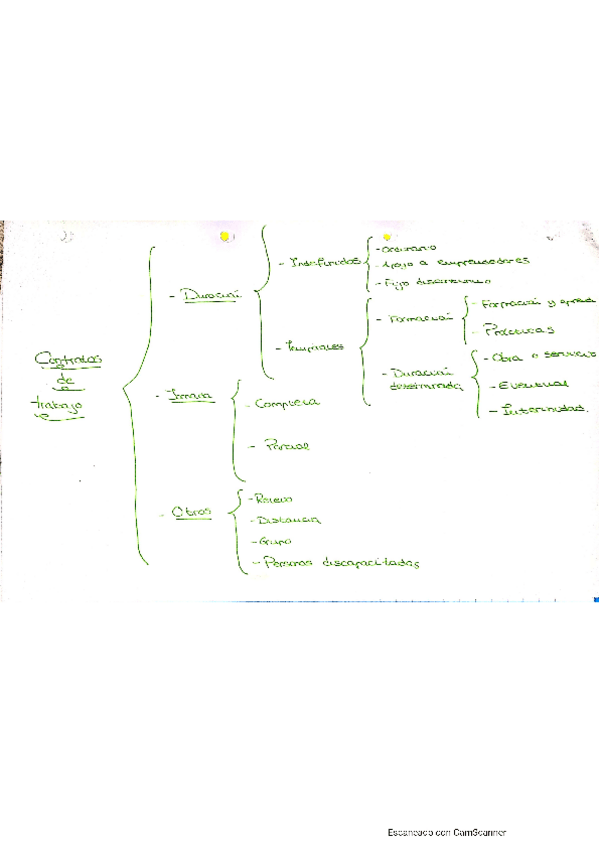 Contratos
de
trabajo
- Duración
- Indefinidos
- Ordinario
- Apoyo a emprendedores
- Fijo discontinuo
- Temporales
- Formación
- Formación y apren
- Prácticas
- Duración
determinada
- Obra o servicio
- Eventual
- Interinidad.
- Jornada
- Completa
- Parcial
- Otros
- Relevo
- Distancia
- Grupo
- Personas discapacitadas
Escaneado con CamScanner